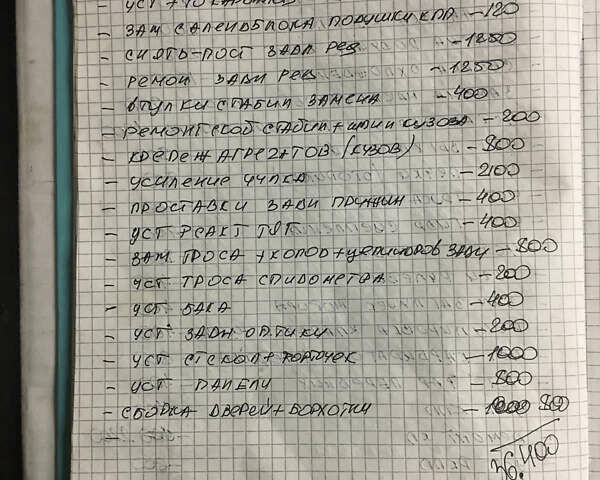 - ЗАМ САЛЕНДБЛОКА ПОДУШКИ КПП -120
- СНЯТЬ-ПОСТ ЗАДН РЕД -1250
- РЕМОН ЗАДН РЕД -1250
- ВТУЛКИ СТАБИЛ ЗАМЕНА -400
- РЕМОНТ СКОБ СТАБИЛ + КУЗОВА -200
- КРЕПЕЖ АГРЕГАТОВ (КУЗОВ) - 800
- УСИЛЕНИЕ -2100
- ПРОСТАВКИ ЗАДН ПРУЖИН -400
- УСТ РЕАКТ ТЯГ -400
- ЗАМ. ТРОСА + КОЛОД + ЦЕЛИНДРОВ ЗАДН -800
- УСТ ТРОСА СПИДОМЕТРА -200
- УСТ БАКА -400
- УСТ ЗАДН ОПТИКИ -200
- УСТ СТЕКОЛ + ФОРТОЧЕК -1000
- УСТ ПАНЕЛИ - 800
- СБОРКА ДВЕРЕЙ + БОРХОТКИ - 800
36.400